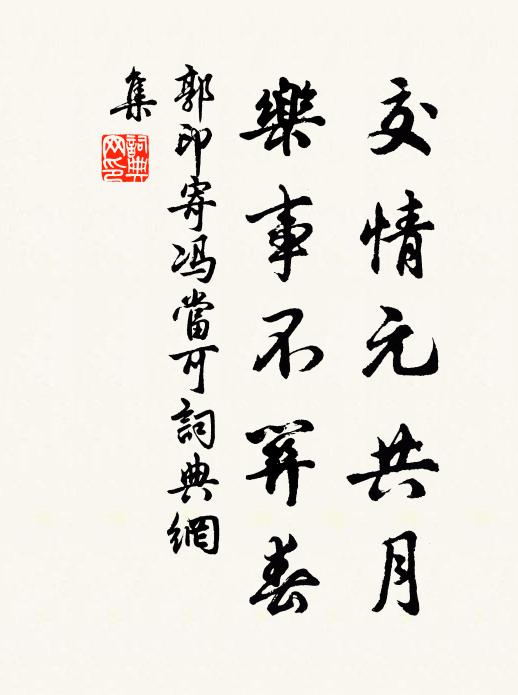 交情元共月
樂事不春
郭印寄冯當可詞典網
集
詞典
网印